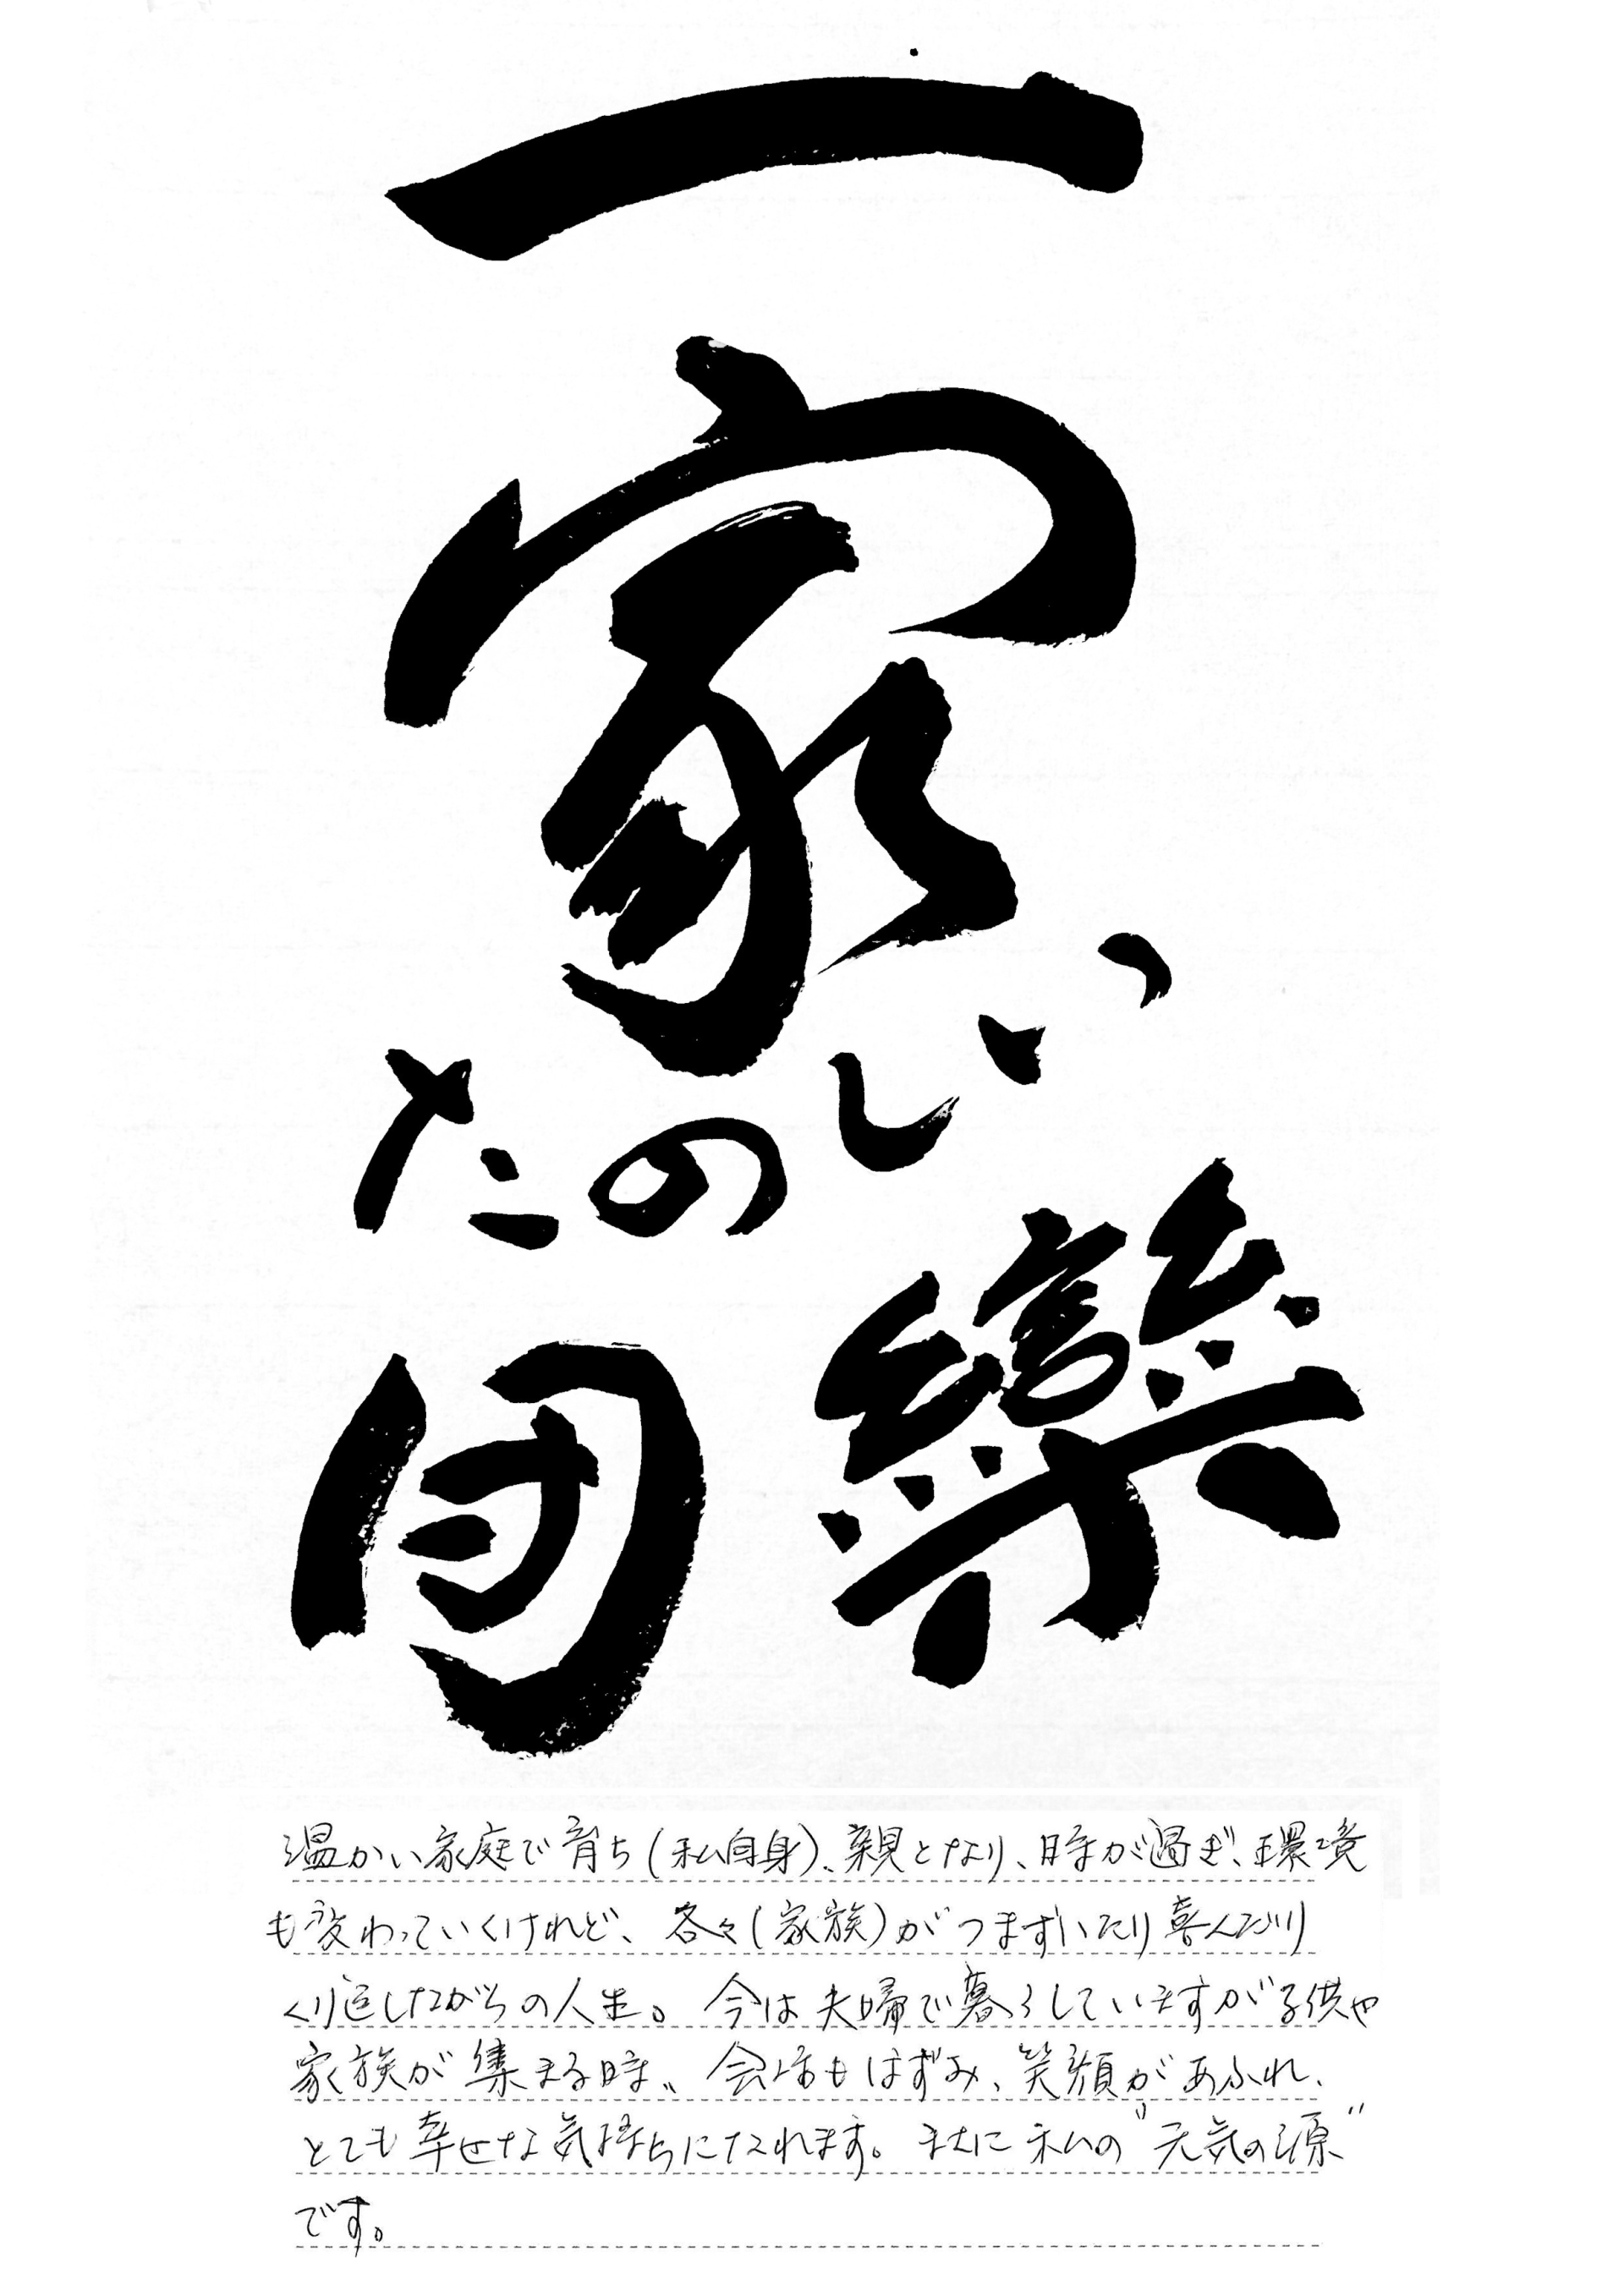 一
家
たのしい
団欒
温かい家庭で育ち(私自身)、親となり、時が過ぎ、環境
も変わっていくけれど、各々(家族)がつまずいたり喜んだり
くり返しながらの人生。今は夫婦で暮らしていますが子供や
家族が集まる時、会話もはずみ、笑顔があふれ、
とても幸せな気持ちになれます。まさに私の"元気の源"
です。